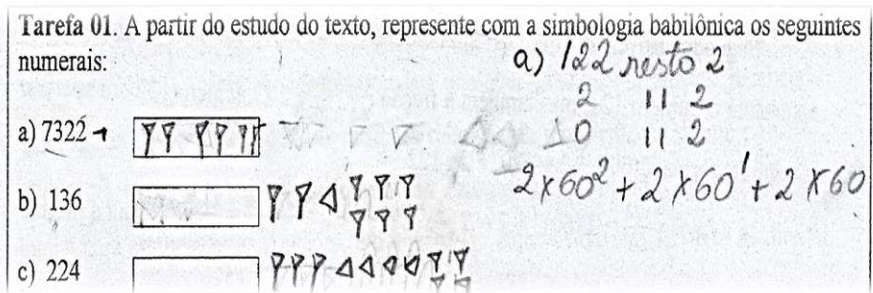 Tarefa 01. A partir do estudo do texto, represente com a simbologia babilônica os seguintes
numerais:
a) 122 resto 2
2 11 2
0 11 2
a) 7322
2x60² + 2x60¹ + 2x60
b) 136
c) 224